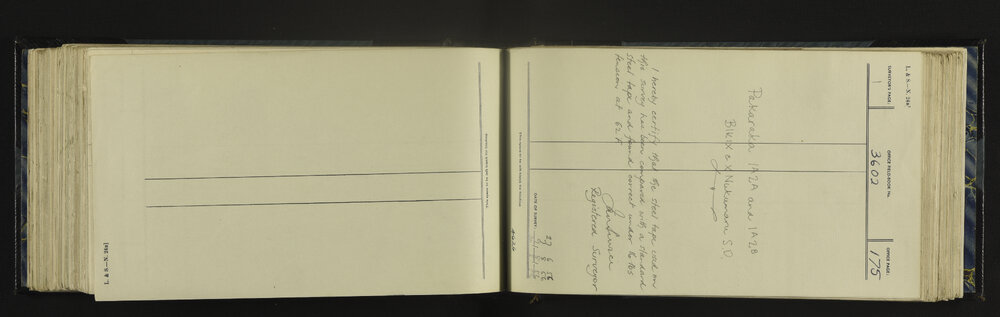 L. & S.—N. 26a]
L. & S.—N. 26a]
SURVEYOR'S PAGE:
1
OFFICE FIELD-BOOK No.
3602
OFFICE PAGE:
175
Pakaraka 1A2A and 1A2B
Blk IX & X Nukumaru S.D.
I hereby certify that the steel tape used on
this survey has been compared with a standard
steel tape and found correct under 16 lbs
tension at 62°F.
Registered Surveyor
DATE OF SURVEY:
29 6 56